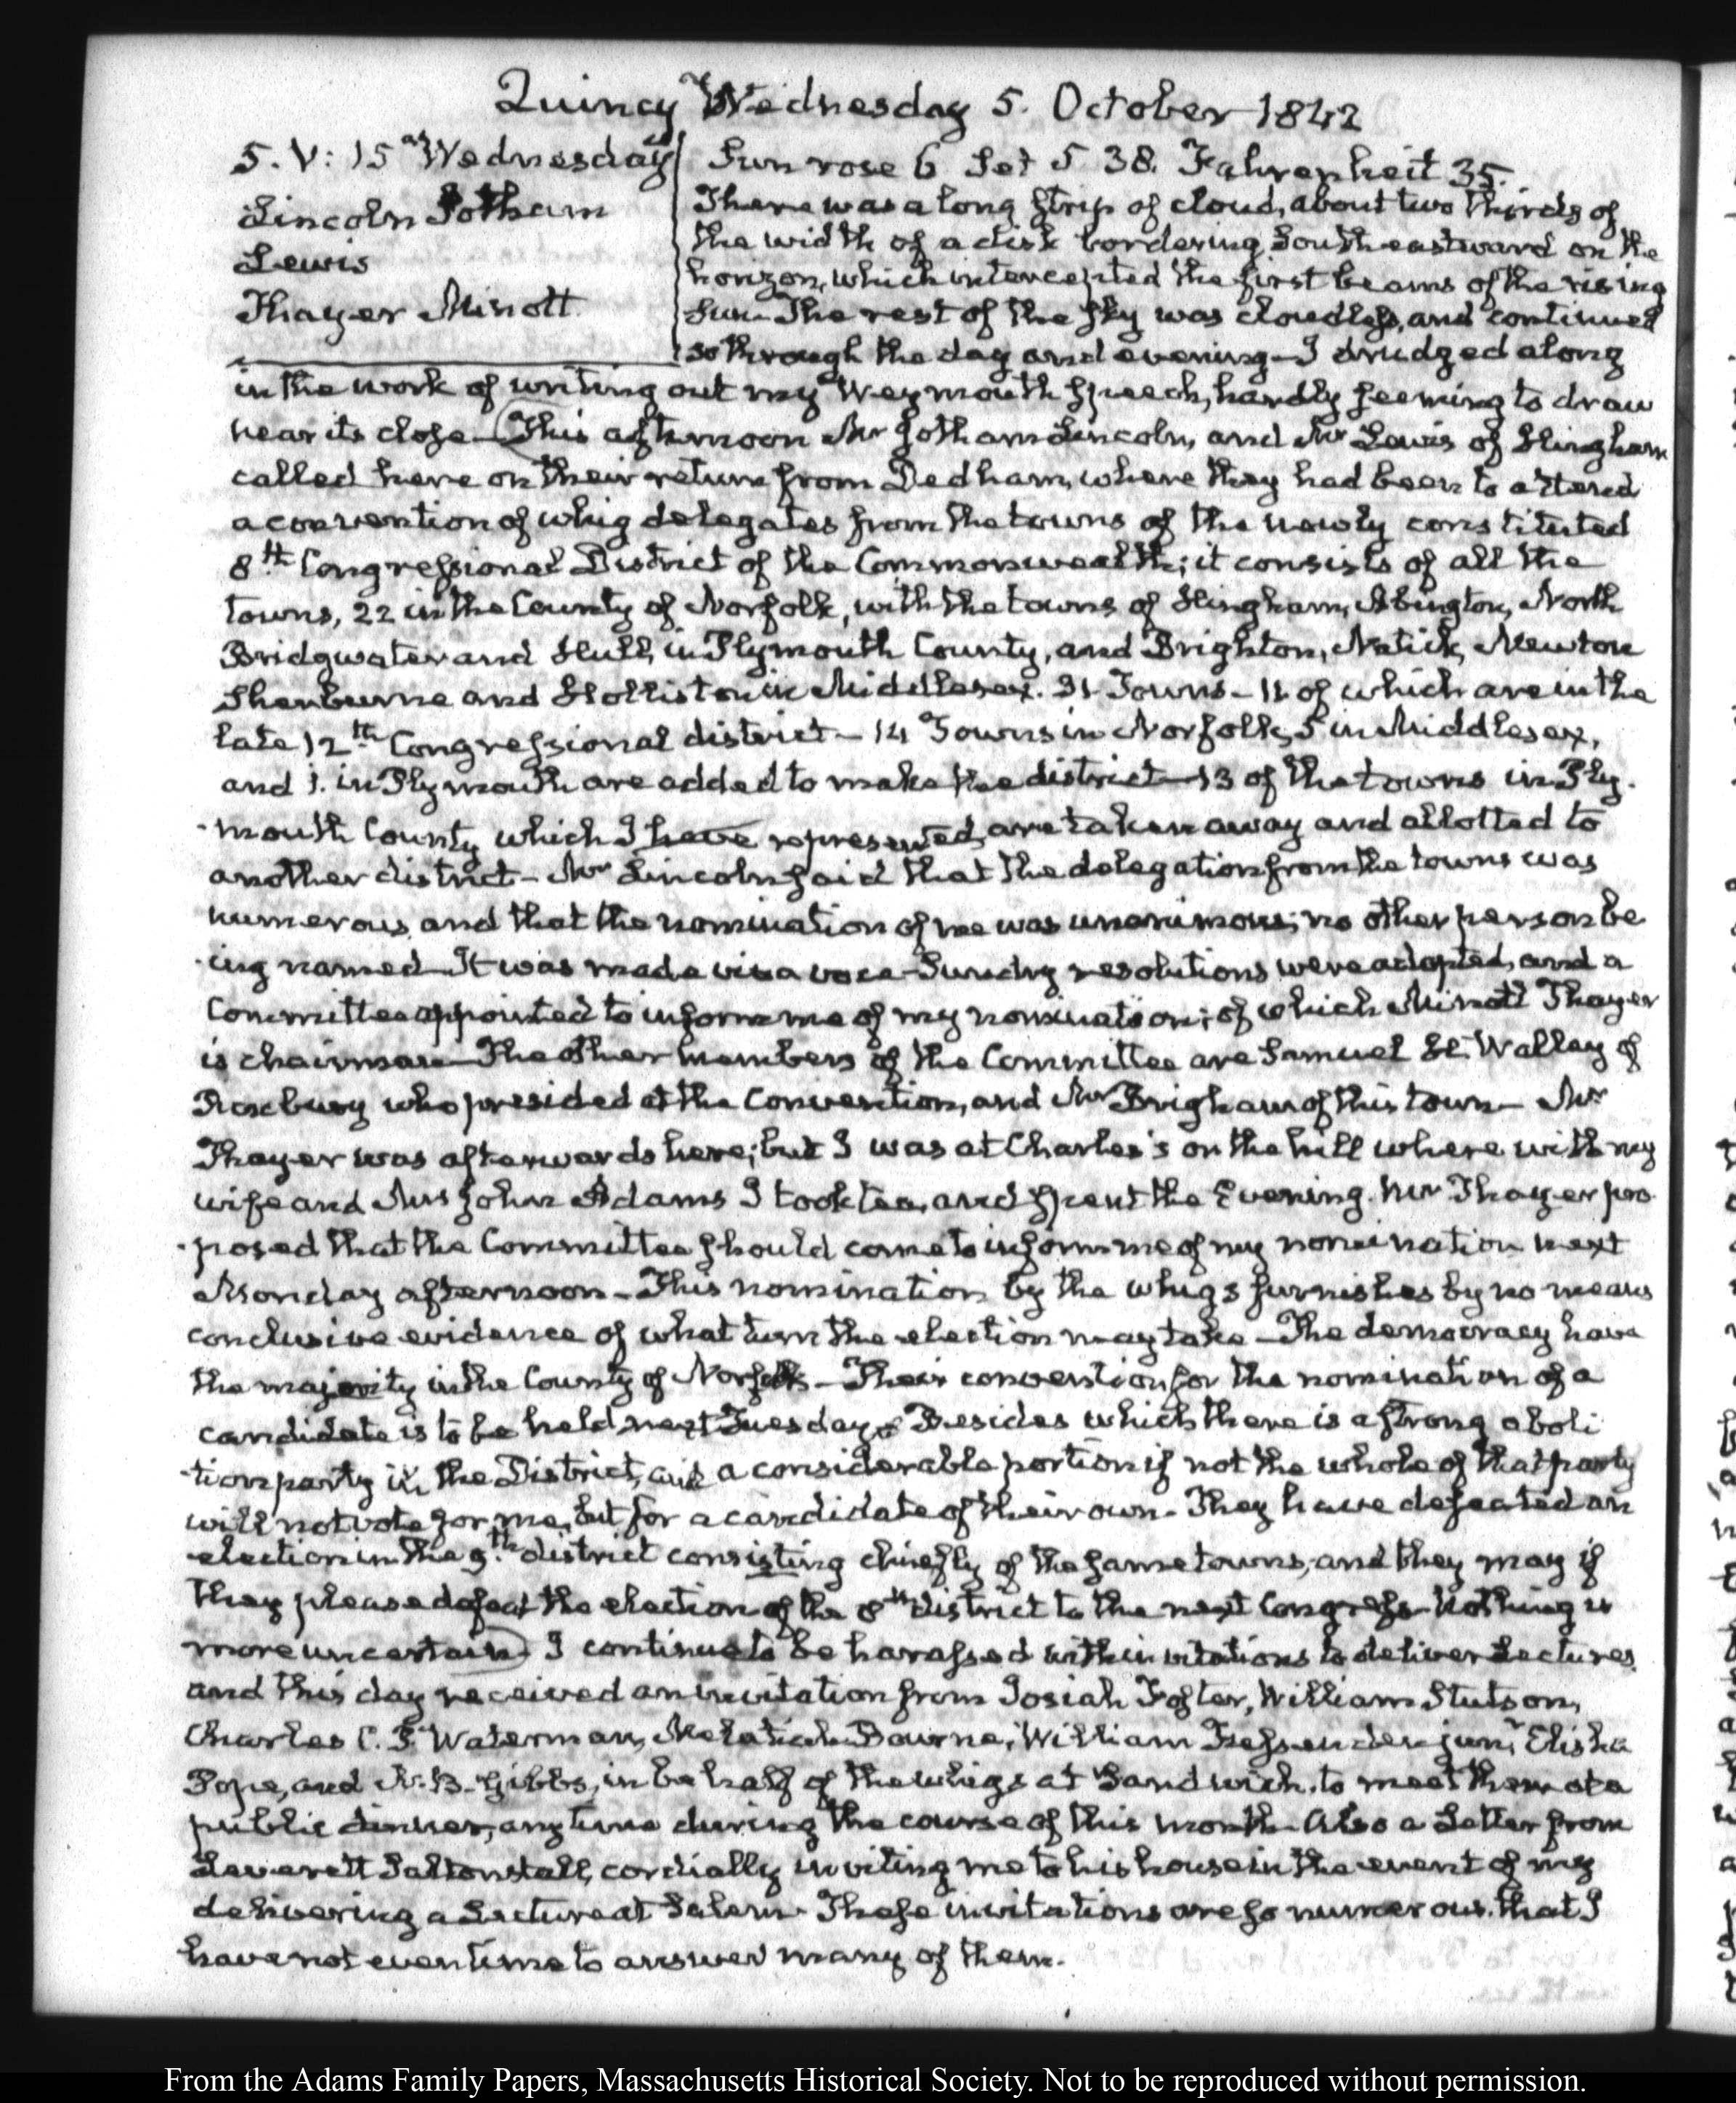 Quincy Wednesday 5. October 1842
5. V: 15 Wednesday
Lincoln Jotham
Lewis
Thayer Minott
Sun rose 6 Set 5 38. Fahrenheit 35.
There was a long strip of cloud, about two thirds of
the width of a disk bordering South eastward on the
horizon, which intercepted the first beams of the rising
Sun — The rest of the sky was cloudless, and continued
so through the day and evening — I drudged along
in the work of writing out my Weymouth speech, hardly seeming to draw
near its close — (This afternoon Mr Jotham Lincoln, and Mr Lewis of Hingham
called here on their return from Dedham, where they had been to attend
a convention of whig delegates from the towns of the newly constituted
8th Congressional District of the Commonwealth; it consists of all the
towns, 22 in the County of Norfolk, with the towns of Hingham, Abington, North
Bridgwater and Hull, in Plymouth County, and Brighton, Natick, Newton
Sherburne and Holliston in Middlesex. 31 Towns — 11 of which are in the
late 12th Congressional district — 14 Towns in Norfolk, 5 in Middlesex,
and 1. in Plymouth are added to make the district — 13 of the towns in Ply-
-mouth County which I have represented, are taken away and allotted to
another district — Mr Lincoln said that the delegation from the towns was
numerous, and that the nomination of me was unanimous; no other person be
-ing named — It was made viva voce — Sundry resolutions were adopted, and a
Committee appointed to inform me of my nomination; of which Minott Thayer
is chairman — The other members of the Committee are Samuel H. Walley of
Roxbury who presided at the Convention, and Mr Brigham of this town — Mr
Thayer was afterwards here; but I was at Charles's on the hill where with my
wife and Mrs John Adams I took tea, and spent the Evening. Mr Thayer pro
-posed that the Committee should come to inform me of my nomination next
Monday afternoon — This nomination by the whigs furnishes by no means
conclusive evidence of what turn the election may take — The democracy have
the majority in the County of Norfolk — Their convention for the nomination of a
candidate is to be held next Tuesday — Besides which there is a strong aboli
-tion party in the District, and a considerable portion if not the whole of that party
will not vote for me, but for a candidate of their own — They have defeated an
election in the 9th district consisting chiefly of the same towns, and they may if
they please defeat the election of the 8th district to the next Congress — Nothing is
more uncertain) I continue to be harassed with invitations to deliver Lectures
and this day received an invitation from Josiah Foster, William Stutson,
Charles C. P. Waterman, Melatiah Bourne, William Fessenden junr, Elisha
Pope, and N. B. Gibbs, in behalf of the whigs at Sandwich, to meet them at a
public dinner, any time during the course of this month — Also a Letter from
Leverett Saltonstall, cordially inviting me to his house in the event of my
delivering a Lecture at Salem — These invitations are so numerous that I
have not even time to answer many of them.
From the Adams Family Papers, Massachusetts Historical Society. Not to be reproduced without permission.